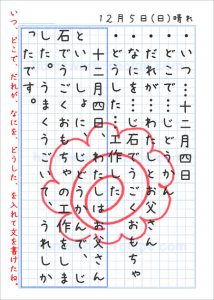 12月5日(日)晴れ
・いつ…十二月四日
・どこで…じどうかん
・だれが…わたしとお父さん
・なにを…じ石でうごくおもちゃ
・どうした…工作した
　十二月四日、わたしはお父さん
といっしょに、じどうかんで、じ
石でうごくおもちゃの工作をしま
した。うまくうごいて、うれしか
ったです。
いつ、どこで、だれが、なにを、どうした、を入れて文を書けたね。